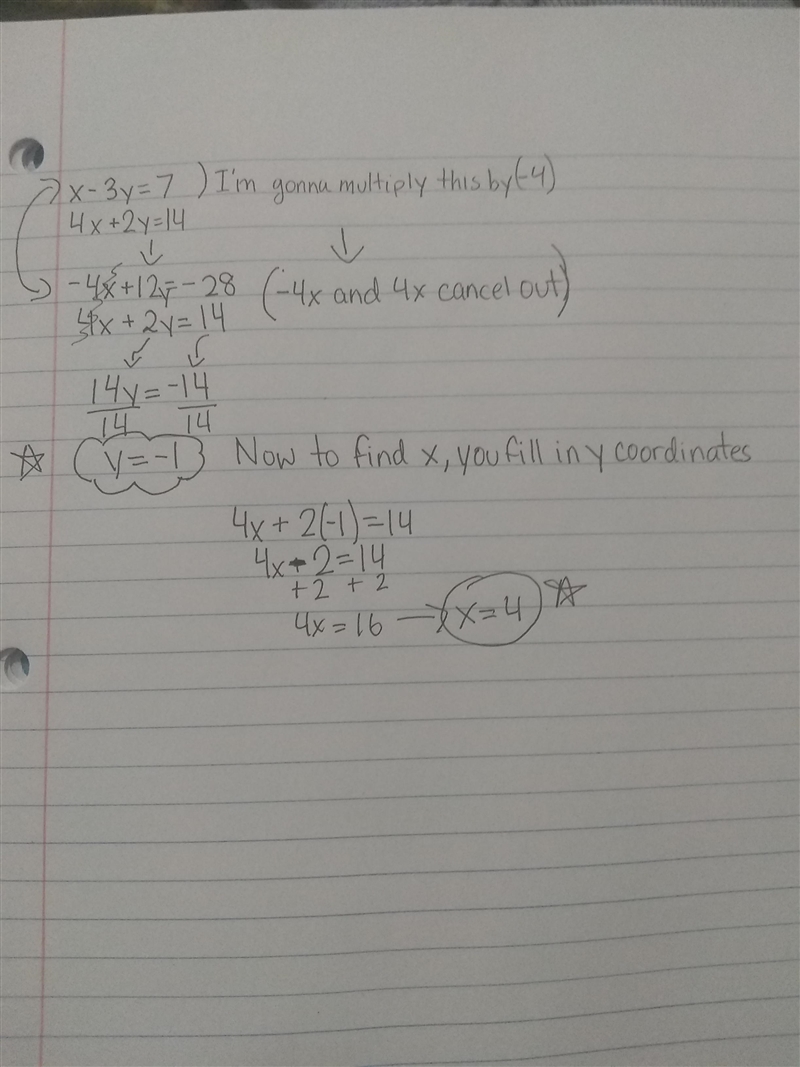 x-3y=7 ) I'm gonna multiply this by (-4)
4x+2y=14
-4x+12y=-28 (-4x and 4x cancel out)
4x + 2y = 14
14y = -14
14 14
y=-1 Now to find x, you fill in y coordinates
4x + 2(-1)=14
4x - 2 = 14
+2 +2
4x = 16 → x=4